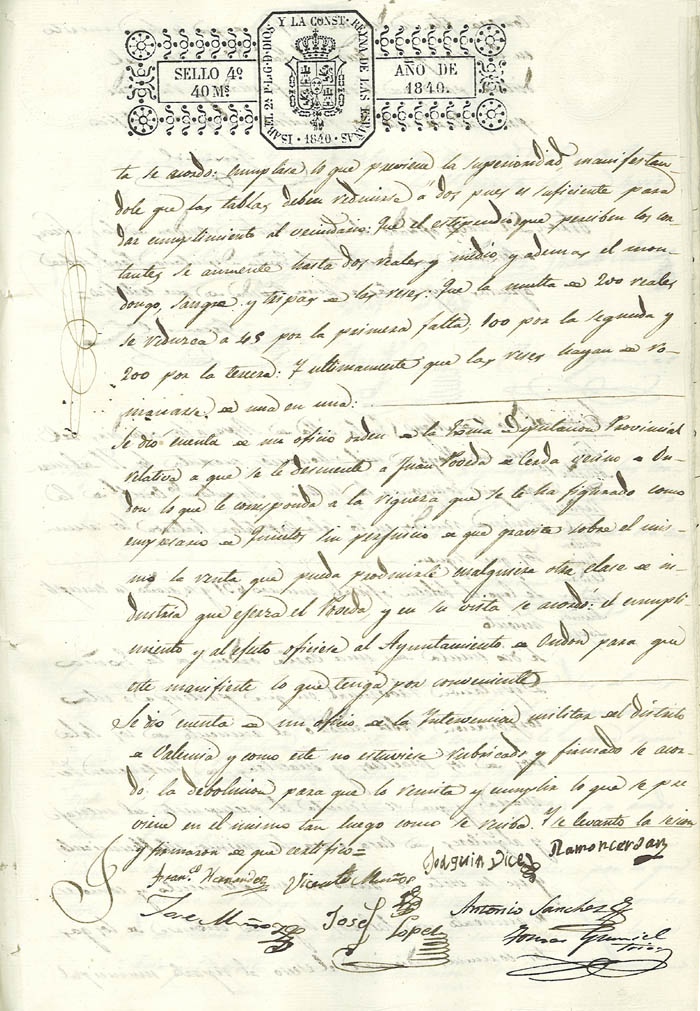 ISABEL 2ª P.L.G.D. DIOS Y LA CONST. REYNA DE LAS ESPAÑAS
· 1840 ·
SELLO 4º
40 Mˢ.
AÑO DE
1840.
ta se acordo: cumplase lo que previene la superioridad, manifestan-
dole que las tablas deben reducirse a dos pues es suficiente para
dar cumplimiento al vecindario: Que el estipendio que perciben los cor-
tantes se aumente hasta dos reales y medio, y ademas el mon-
dongo, sangre y tripas de las reses: Que la multa de 200 reales
se reduzca a 45 por la primera falta, 100 por la segunda y
200 por la tercera: Y ultimamente que las reses hayan de ro-
manarse de una en una:
Se dió cuenta de un oficio orden de la Exma Diputacion Provincial
relativa a que se le descuente a Juan Poveda de Cerda vecino de On-
don lo que le corresponda á la riqueza que se le ha figurado como
empresario de Quintos sin perjuicio de que gravite sobre el mis-
mo la renta que pueda producirle cualquiera otra clase de in-
dustria que ejerza el Poveda y en su vista se acordó: el cumpli-
miento y al efecto oficiese al Ayuntamiento de Ondon para que
este manifieste lo que tenga por conveniente
Se dió cuenta de un oficio de la Intervencion militar del distrito
de Valencia y como este no estuviese rubricado y firmado se acor-
dó: la debolucion para que lo remita y cumplir lo que se pre-
viene en el mismo tan luego como se reciba. Y se levanto la sesion
y firmaron de que certifico=
Joaquin Vice
Ramon Cerdan
Franco. Hernandez
Vicente Muños
Jose Muños
Jose Lopes
Antonio Sanchez
Tomas